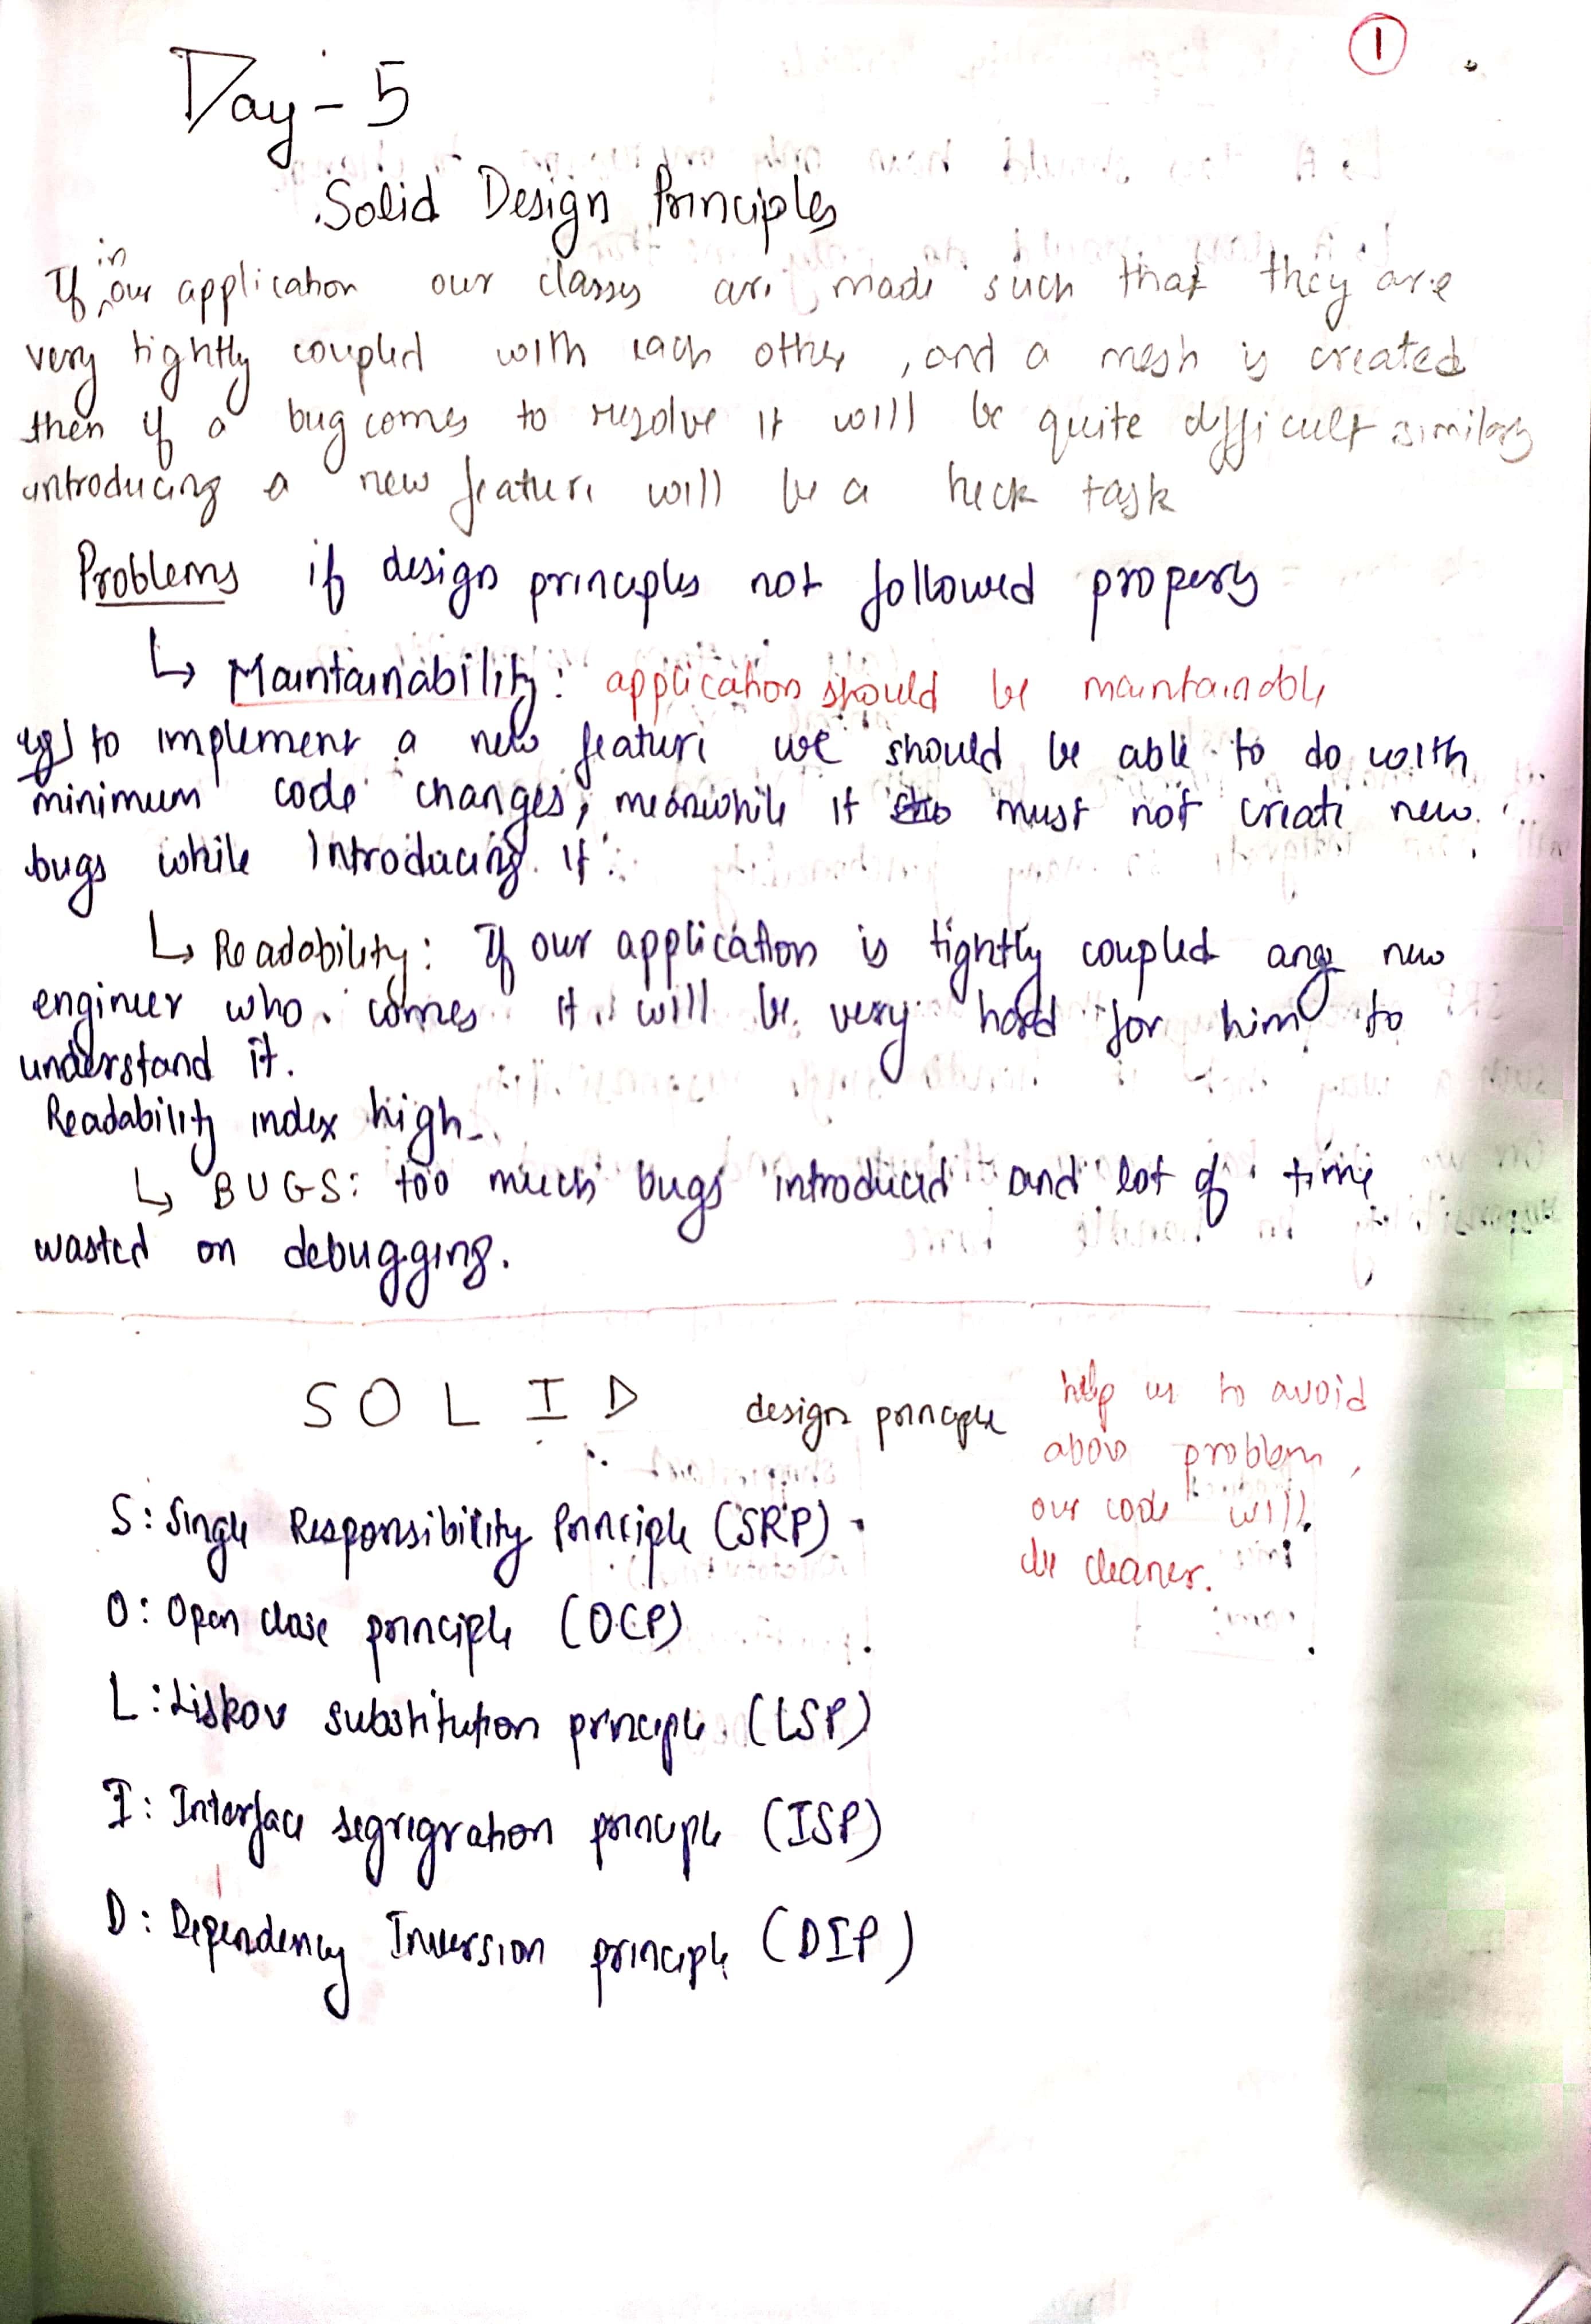 1
Day - 5
Solid Design Principles
If in our application our classes are made such that they are
very tightly coupled with each other, and a mesh is created
then if a bug comes to resolve it will be quite difficult similarly
introducing a new feature will be a heck task
Problems if design principles not followed propery
↳ Maintainability: application should be maintainable
eg) to implement a new feature we should be able to do with
minimum code changes, meanwhile it must not create new
bugs while Introducing it.
↳ Readability: If our application is tightly coupled any new
engineer who comes it will be very hard for him to
understand it.
Readability index high.
↳ BUGS: too much bugs introduced and lot of time
wasted on debugging.
S O L I D design principle
help us to avoid
above problem,
our code will
be cleaner.
S: Single Responsibility Principle (SRP)
O: Open close principle (OCP)
L: Liskov substitution principle (LSP)
I: Interface segrigration principle (ISP)
D: Dependency Inversion principle (DIP)